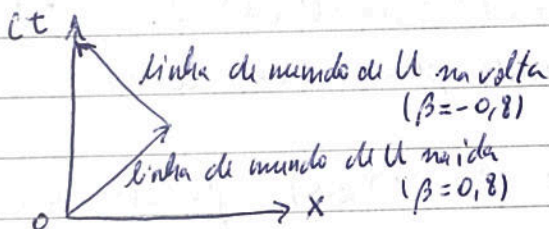 ct
linha de mundo de U na volta
(β=-0,8)
linha de mundo de U na ida
(β=0,8)
O
X